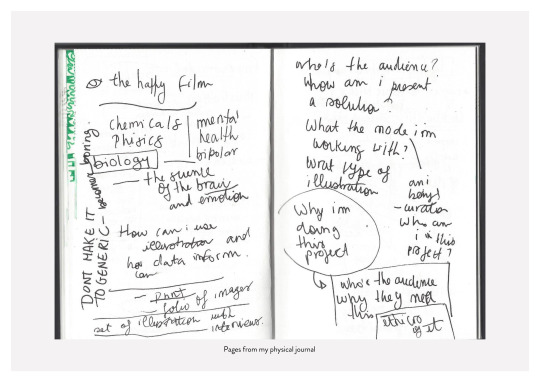 the happy film
Chemicals
Phisics
biology
mental
health
bipolar
the science
of the brain
and emotion
DONT MAKE IT
TO GENERIC - becomes boring.
How can i use
illustration and
how data inform.
can
folio of images
set of illustration with
interviews.
who's the audience?
Whow am i present
a solution?
What the mode i im
working with?
Wrat type of
illustration
am i
being
- curation
Who am
i in this
project?
Why im
doing
this
project
who's the audience
why they need
this
ethics
of it
Pages from my physical journal